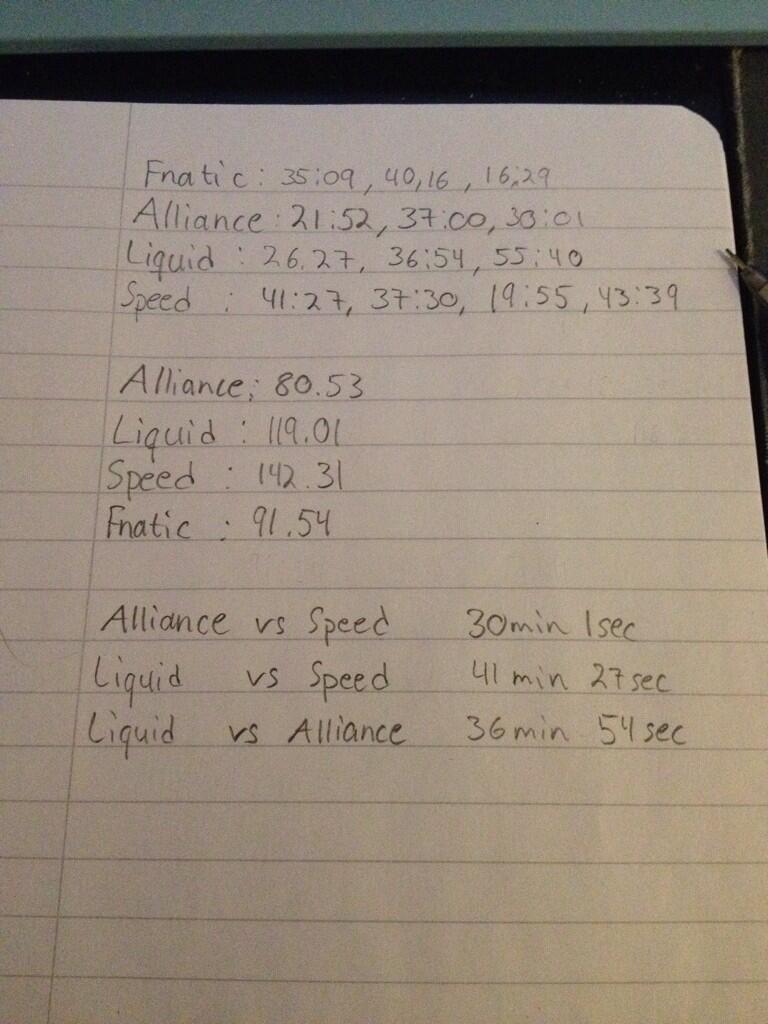 Fnatic: 35:09, 40,16, 16:29
Alliance: 21:52, 37:00, 30:01
Liquid : 26.27, 36:54, 55:40
Speed : 41:27, 37:30, 19:55, 43:39
Alliance: 80.53
Liquid : 119.01
Speed : 142.31
Fnatic : 91.54
Alliance vs Speed 30min 1sec
Liquid vs Speed 41 min 27sec
Liquid vs Alliance 36min 54sec